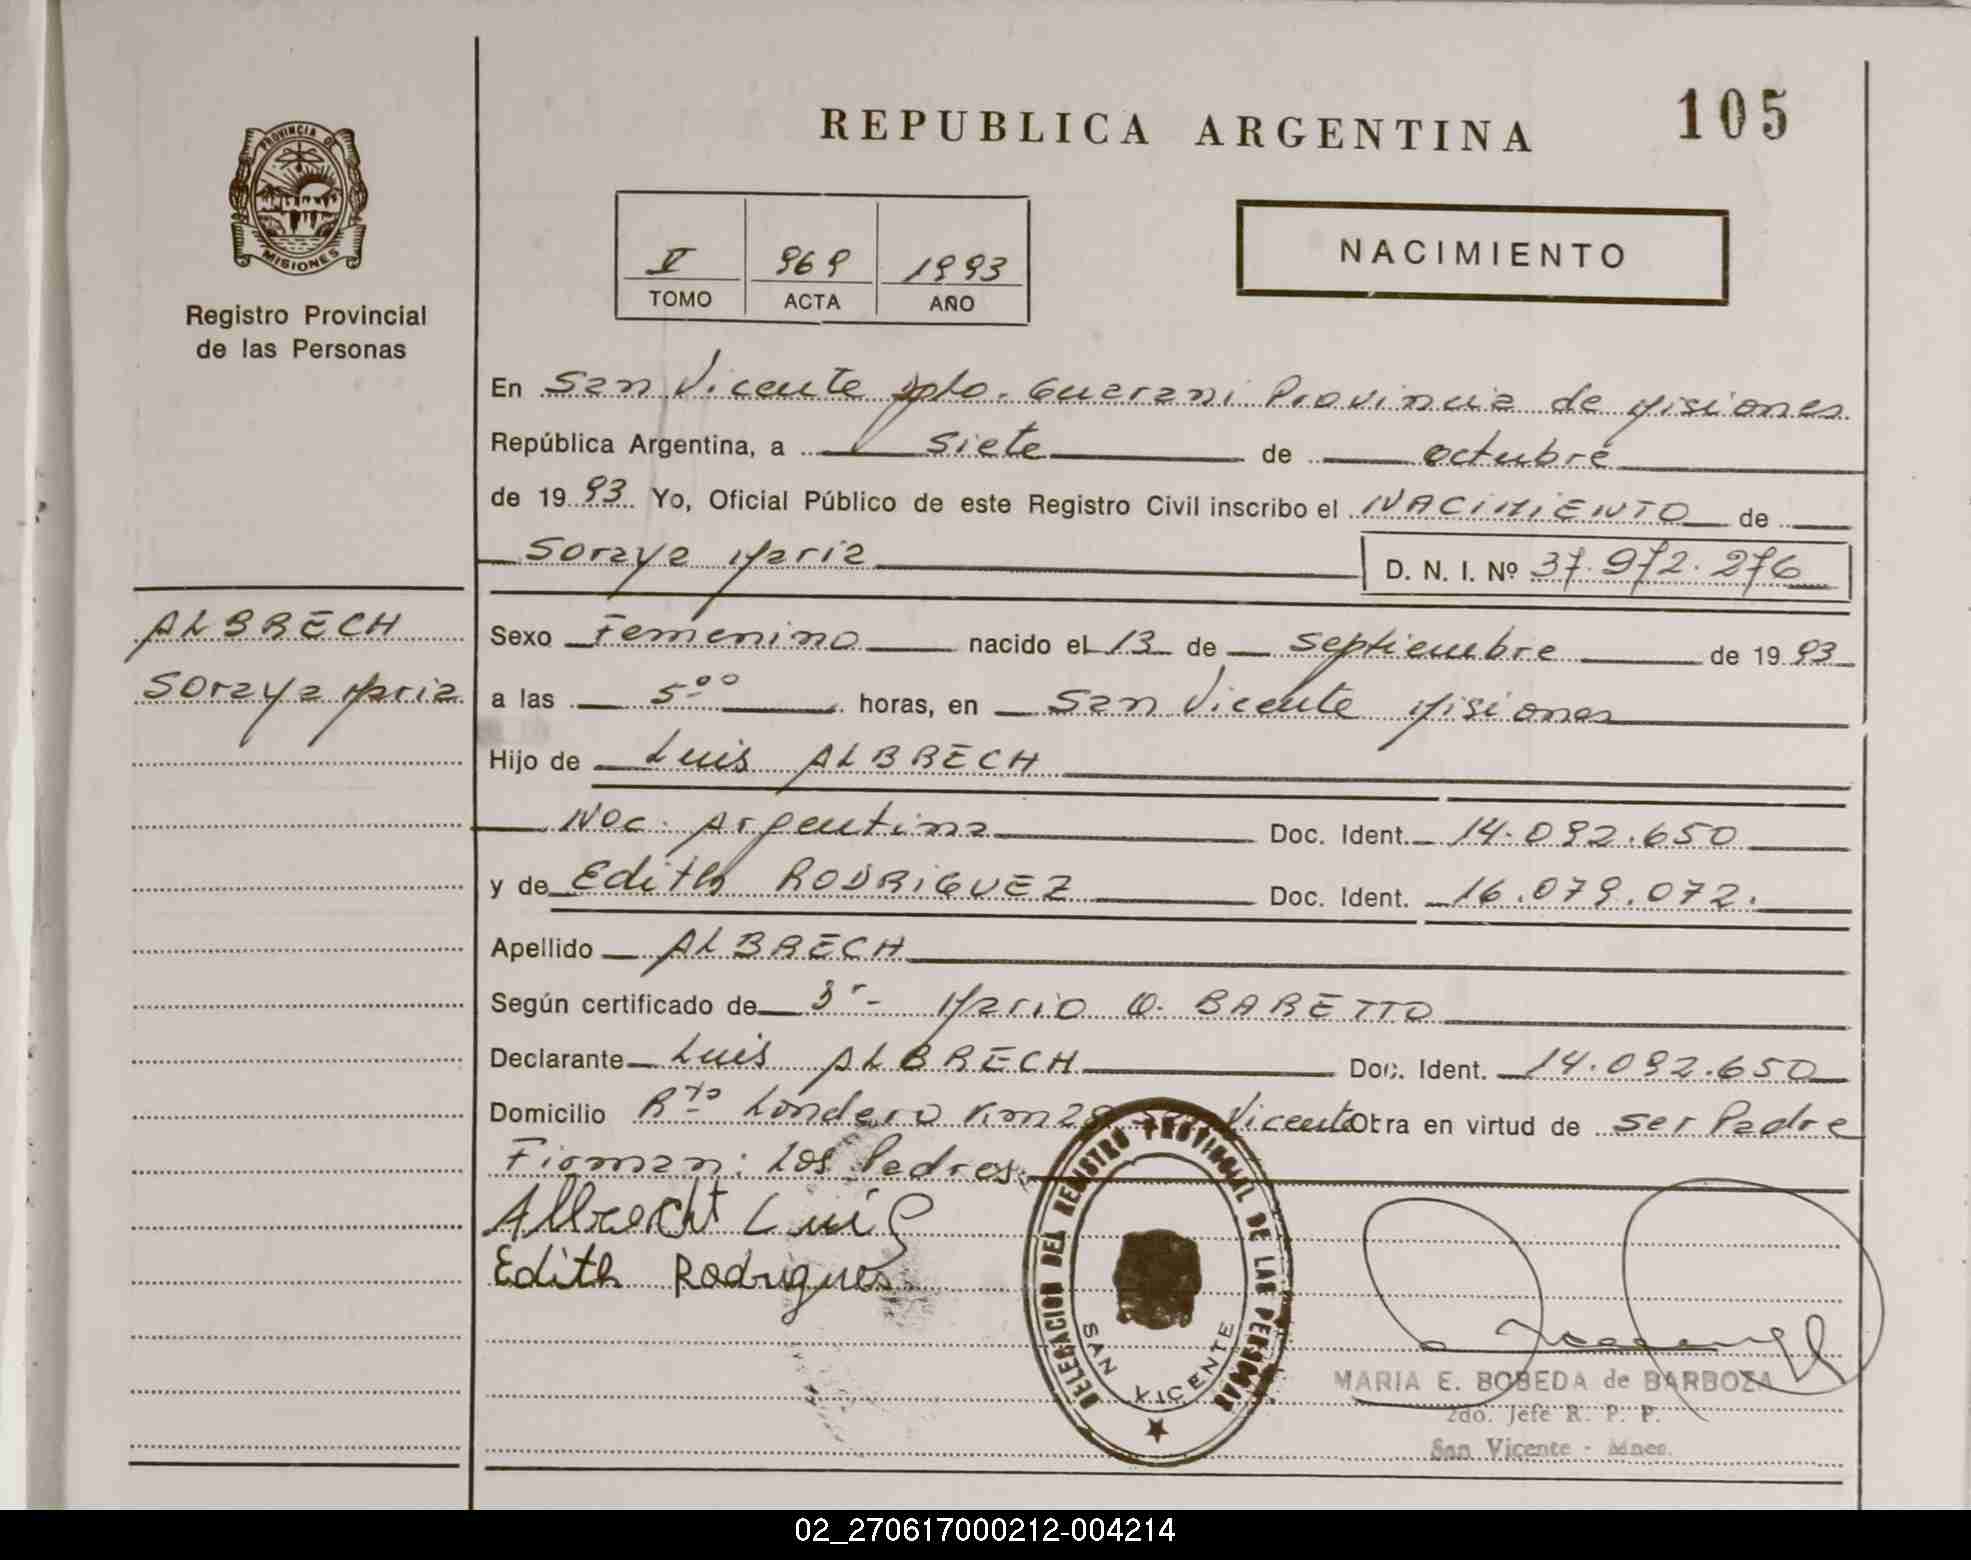 105
REPUBLICA ARGENTINA
PROVINCIA DE
MISIONES
Registro Provincial
de las Personas
V 969 1993
TOMO ACTA AÑO
NACIMIENTO
En San Vicente Dpto. Guarani Provincia de Misiones
República Argentina, a siete de octubre
de 1993 Yo, Oficial Público de este Registro Civil inscribo el NACIMIENTO de
Soraya Maria D. N. I. Nº 37.972.276
ALBRECH
Soraya Maria
Sexo Femenino nacido el 13 de septiembre de 1993
a las 5ºº horas, en San Vicente Misiones
Hijo de Luis ALBRECH
Nac. Argentina Doc. Ident. 14.092.650
y de Edith RODRIGUEZ Doc. Ident. 16.079.072.
Apellido ALBRECH
Según certificado de Mario O. BARETTO
Declarante Luis ALBRECH Doc. Ident. 14.092.650
Domicilio Rto Londero Km 28 San Vicente Obra en virtud de ser Padre
Firman: Los Padres.
Albrecht Luis
Edith Rodrigues
DELEGACION DEL REGISTRO PROVINCIAL DE LAS PERSONAS
SAN VICENTE
MARIA E. BOBEDA de BARBOZA
2do. Jefe R. P. P.
San Vicente - Mnes.
02_270617000212-004214